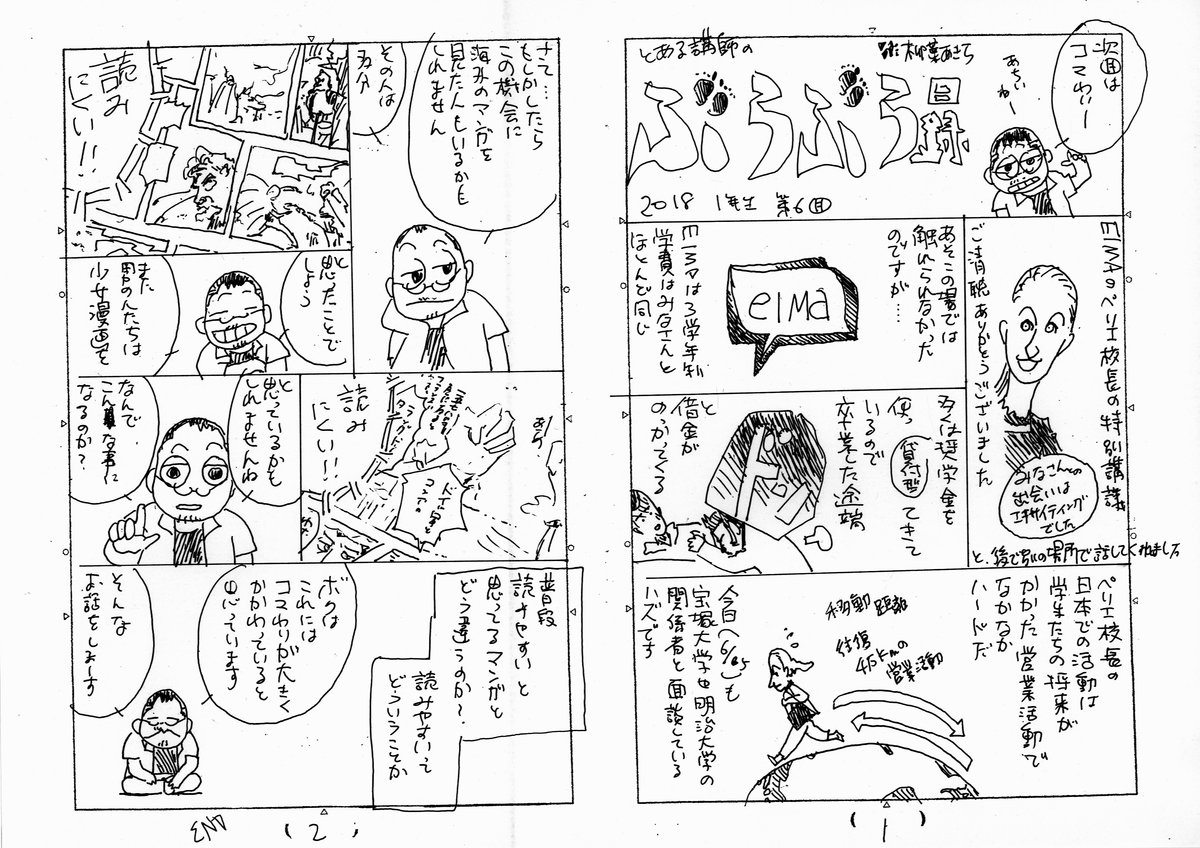 次回は
コマわりー
あちぃ
ねー
とある講師の
ぶらぶら録
2018 1年生 第6回
EIMAのペリエ校長の特別講議
ご清聴ありがとうございました
みなさんとの
出会いは
エキサイティング
でした
と、後で別の場所で話してくれました
あそこの場では
触れられなかった
のですが……
eima
EIMAは3学年制
学費はみなさんと
ほとんど同じ
多くは奨学金を
貸付型
使って
いるので
卒業した途端
と
借金が
のっかってくる
ペリエ校長の
日本での活動は
学生たちの将来が
かかった営業活動で
なかなか
ハードだ
移動距離
往復
4万kmの
営業活動
今日(6/25)も
宝塚大学や明治大学の
関係者と面談している
ハズです
(1)
さて……
もしかしたら
この機会に
海外のマンガを
見た人もいるかも
しれません
その人は
多分
読み
にくい!!
と
思ったことで
しょう
また
男の人たちは
少女漫画を
あら
読み
にくい!!
と
思っているかも
しれませんね
なんで
こんな事に
なるのか?
普段
読みやすいと
思ってるマンガと
どう違うのか?
読みやすいって
どういうことか
ボクは
これには
コマわりが大きく
かかわっていると
思っています
そんな
お話をしまーす
END
(2)